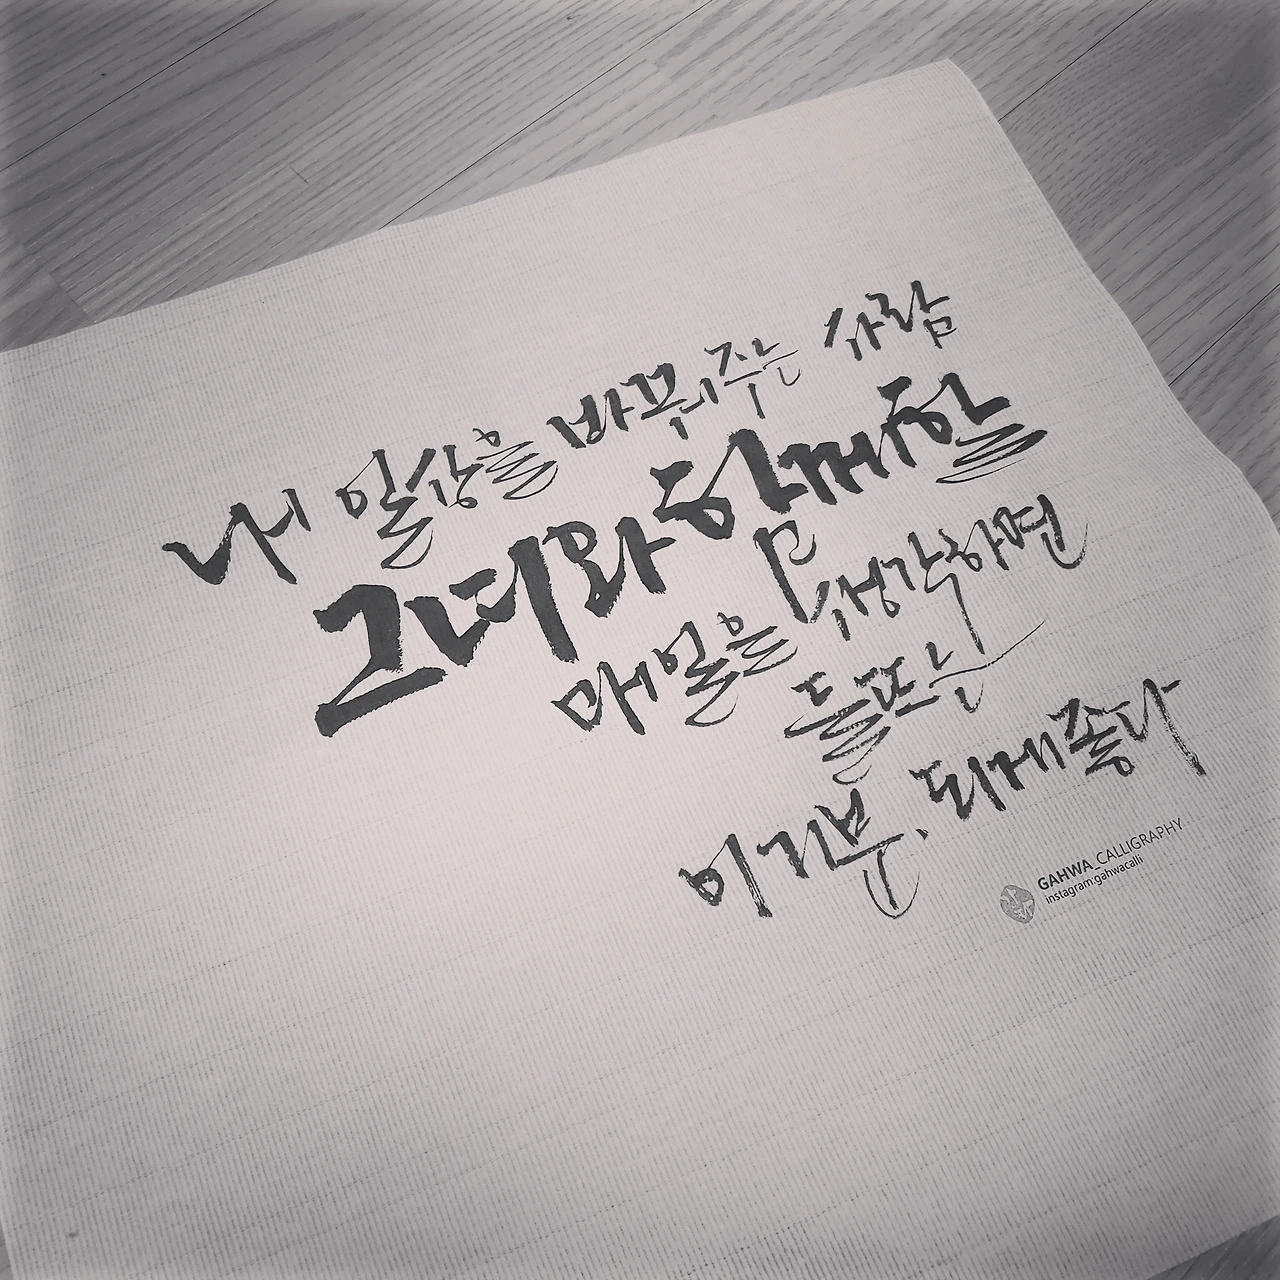 내 일상을 바꿔주는 사람
그녀와 함께할
매일을 생각하면
들뜨는
이 기분, 되게 좋다
GAHWA_CALLIGRAPHY
instagram:gahwacalli